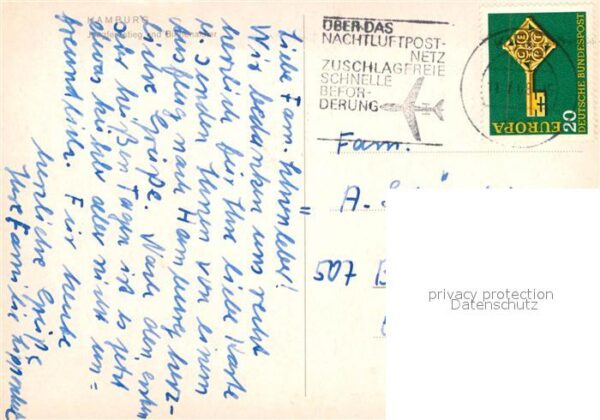 HAMBURG
Jungfernstieg und Binnenalster
Liebe Fam.
Wir bedanken uns recht
herzlich für Ihre liebe Karte
u. senden Ihnen von einem
Ausflug nach Hamburg herz-
liche Grüße. Nach den ersten
sehr heißen Tagen ist es jetzt
etwas kühler aber nicht un=
freundlich. Für heute
herzliche Grüße
Ihre Familie
ÜBER DAS
NACHTLUFTPOST-
NETZ
ZUSCHLAGFREIE
SCHNELLE
BEFÖR-
DERUNG
EUROPA
20
DEUTSCHE BUNDESPOST
CEPT
Fam.
A.
507 B
privacy protection
Datenschutz